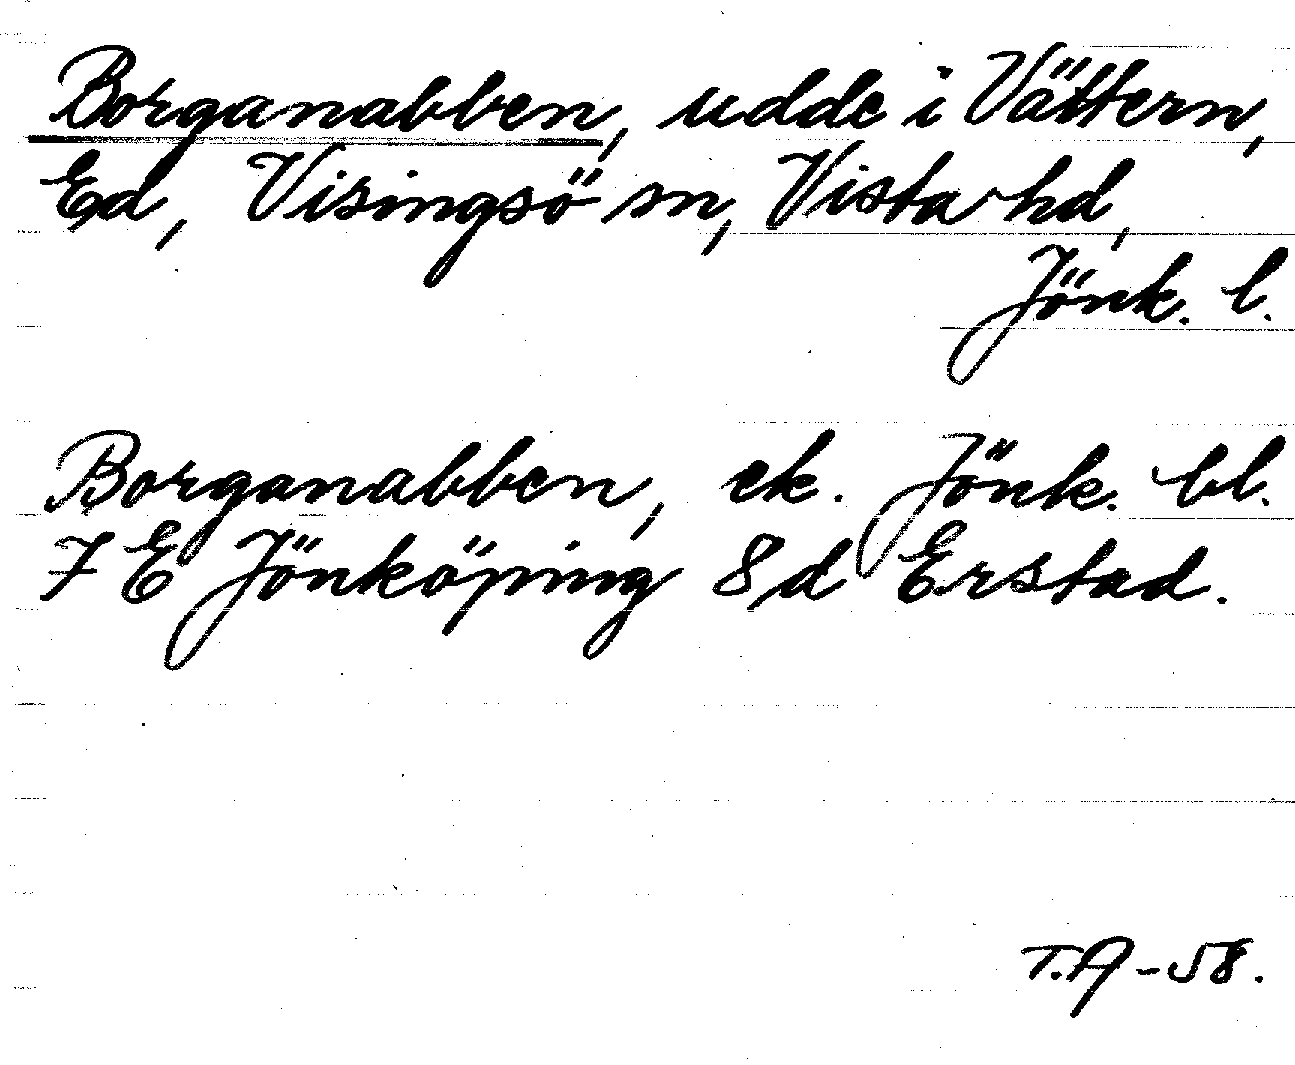 Borganabben, udde i Vättern,
Ed, Visingsö sn, Vista hd,
Jönk. l.
Borganabben, ek. Jönk. bl.
7 E Jönköping 8 d Erstad.
T.A-58.